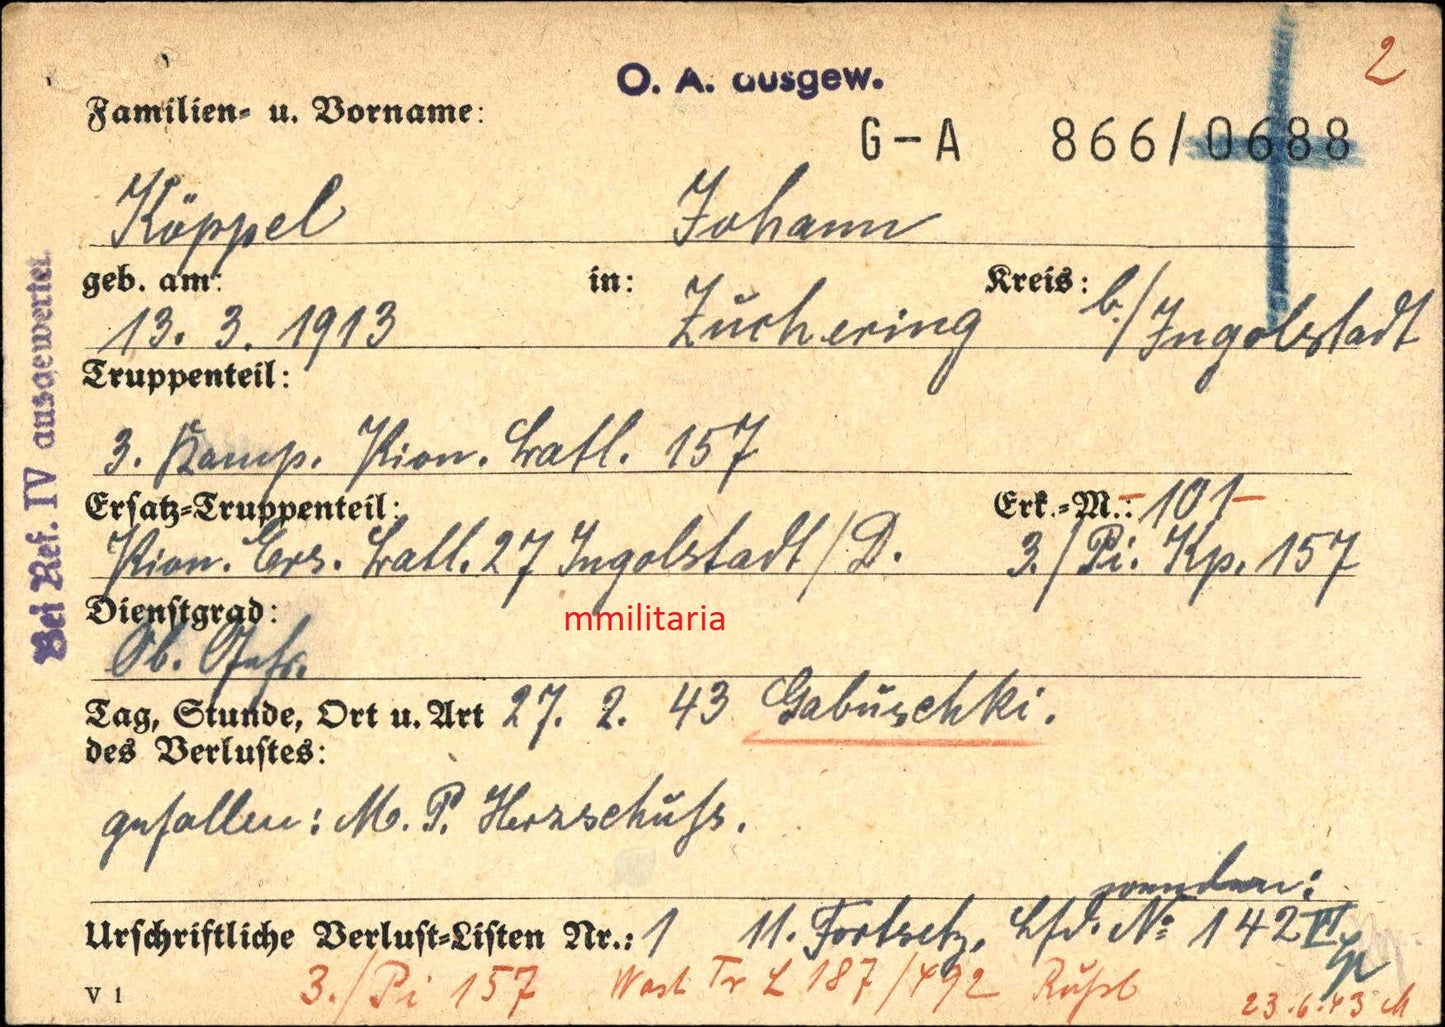 2
O. A. ausgew.
Familien- u. Vorname:
G-A 866/0688
Köppel Johann
geb. am: in: Kreis:
13. 3. 1913 Zuchering b/Ingolstadt
Truppenteil:
3. Komp. Pion. Batl. 157
Ersatz-Truppenteil: Erk.-M.: -101-
Pion. Ers. Batl. 27 Ingolstadt/D. 3./Pi. Kp. 157
Dienstgrad:
mmilitaria
Ob. Gefr.
Tag, Stunde, Ort u. Art 27. 2. 43 Gabuschki.
des Verlustes:
gefallen: M. P. Herzschuß.
wenden:
Urschriftliche Verlust-Listen Nr.: 1 11. Fortsetz. Lfd. No 142
V 1
3./Pi 157 Tr L 187/492 Rußl
23.6.43
Bei Ref. IV ausgewertet.